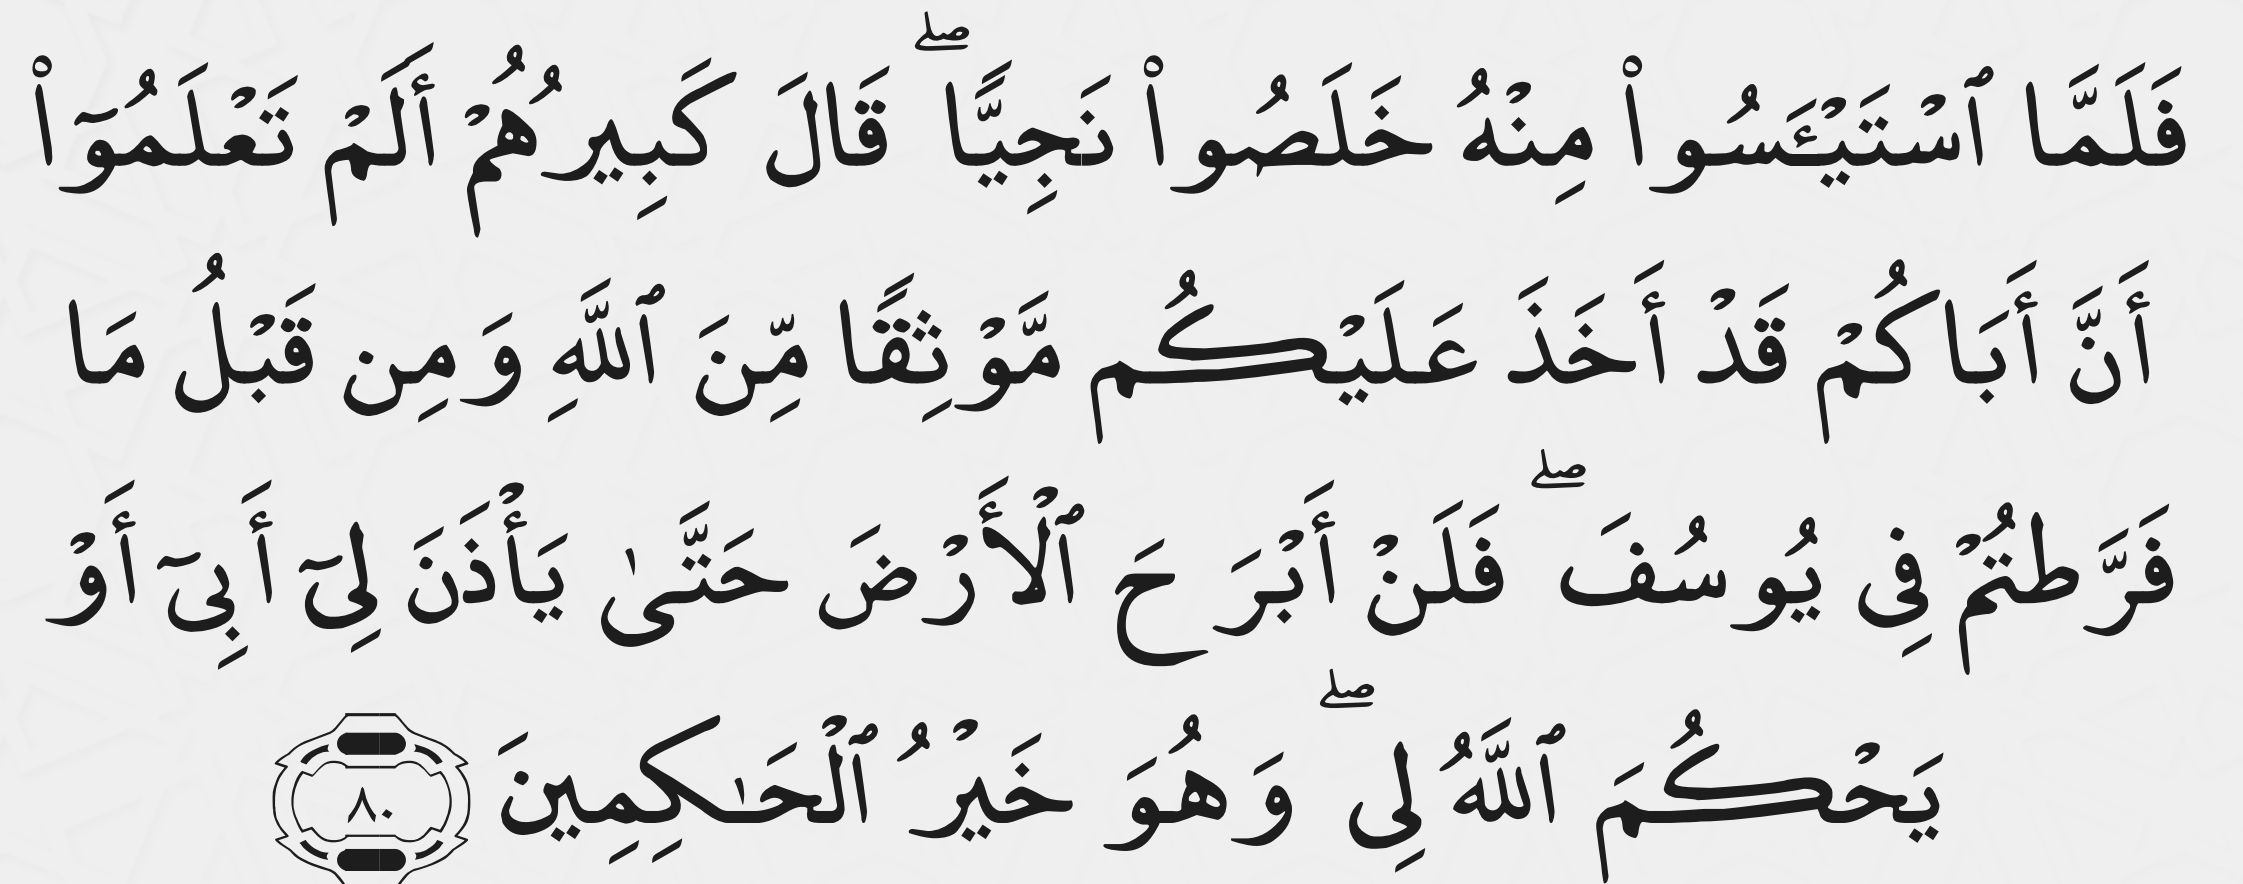 فَلَمَّا ٱسْتَيْـَٔسُوا۟ مِنْهُ خَلَصُوا۟ نَجِيًّا ۖ قَالَ كَبِيرُهُمْ أَلَمْ تَعْلَمُوٓا۟
أَنَّ أَبَاكُمْ قَدْ أَخَذَ عَلَيْكُم مَّوْثِقًا مِّنَ ٱللَّهِ وَمِن قَبْلُ مَا
فَرَّطتُمْ فِى يُوسُفَ ۖ فَلَنْ أَبْرَحَ ٱلْأَرْضَ حَتَّىٰ يَأْذَنَ لِىٓ أَبِىٓ أَوْ
يَحْكُمَ ٱللَّهُ لِى ۖ وَهُوَ خَيْرُ ٱلْحَـٰكِمِينَ ٨٠